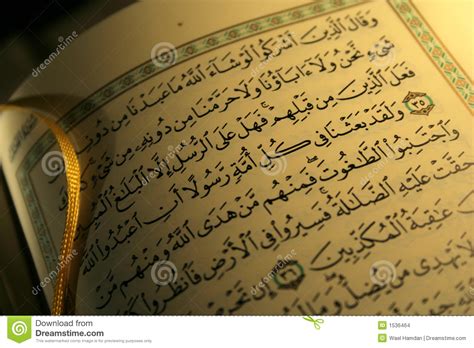 وَقَالَ الَّذِينَ أَشْرَكُوا لَوْ شَاءَ اللَّهُ مَا عَبَدْنَا مِن دُونِهِ
شَيْءٍ نَّحْنُ وَلَا ءَابَاؤُنَا وَلَا حَرَّمْنَا مِن دُونِهِ مِن شَيْءٍ
فَعَلَ الَّذِينَ مِن قَبْلِهِمْ فَهَلْ عَلَى الرُّسُلِ إِلَّا الْبَلَٰغُ الْمُبِينُ
۝٣٥ وَلَقَدْ بَعَثْنَا فِي كُلِّ أُمَّةٍ رَّسُولًا أَنِ اعْبُدُوا اللَّهَ
وَاجْتَنِبُوا الطَّٰغُوتَ فَمِنْهُم مَّنْ هَدَى اللَّهُ وَمِنْهُم مَّنْ
حَقَّتْ عَلَيْهِ الضَّلَٰلَةُ فَسِيرُوا فِي الْأَرْضِ فَانظُرُوا
عَٰقِبَةُ الْمُكَذِّبِينَ ۝٣٦ إِن
لَا يَهْدِي مَن يُضِلُّ وَمَا
dreamstime
Download from
Dreamstime.com
This watermarked comp image is for previewing purposes only.
1536464
Wael Hamdan | Dreamstime.com